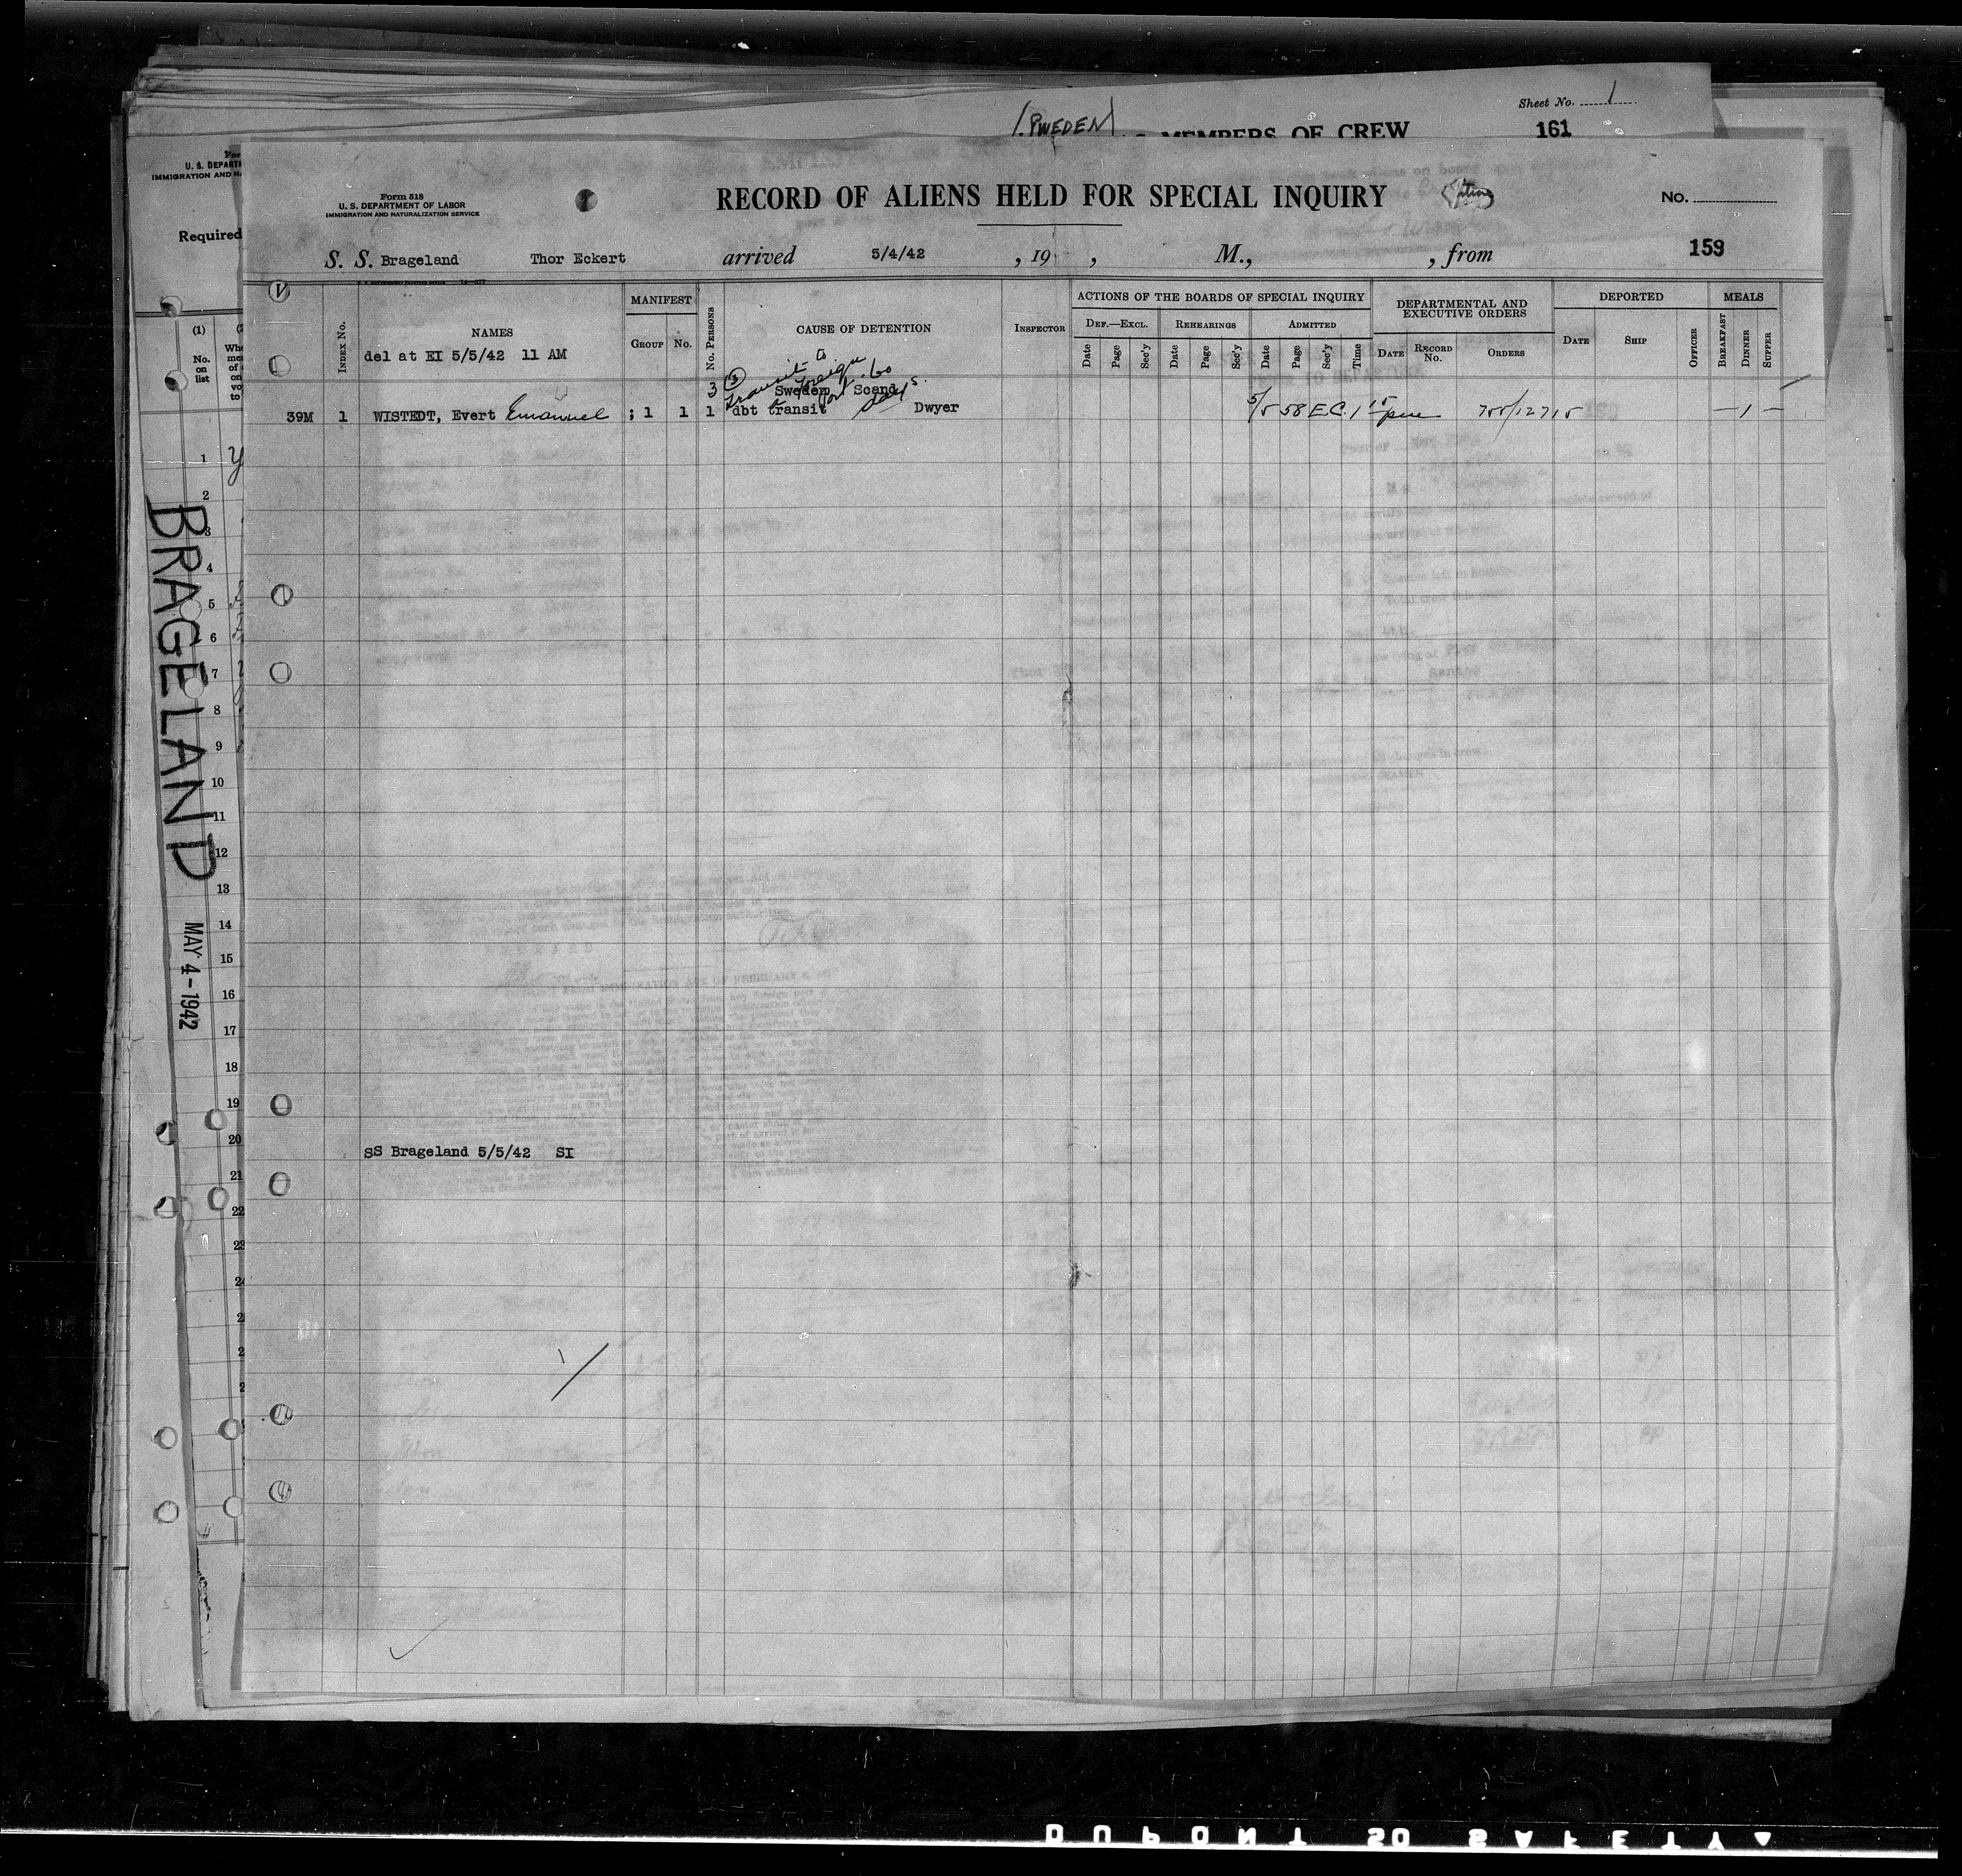 Sheet No. 1
(SWEDEN)
MEMBERS OF CREW
161
U. S. DEPART
IMMIGRATION AND N
Required
Form 518
U. S. DEPARTMENT OF LABOR
IMMIGRATION AND NATURALIZATION SERVICE
RECORD OF ALIENS HELD FOR SPECIAL INQUIRY
No.
S. S. Brageland Thor Eckert arrived 5/4/42 , 19 , M., , from 159
INDEX No.
NAMES
MANIFEST
GROUP No.
No. PERSONS
CAUSE OF DETENTION
INSPECTOR
ACTIONS OF THE BOARDS OF SPECIAL INQUIRY
DEF.—EXCL. REHEARINGS ADMITTED
Date Page Sec'y Date Page Sec'y Date Page Sec'y Time
DEPARTMENTAL AND EXECUTIVE ORDERS
DATE RECORD No. ORDERS
DEPORTED
DATE SHIP
OFFICER
MEALS
BREAKFAST DINNER SUPPER
del at EI 5/5/42 11 AM
Transit to Foreign Port 60 days
3 Sweden Scand
39M 1 WISTEDT, Evert Emanuel ; 1 1 1 dbt transit Dwyer 5/5 58 E.C. 1 15 pm 755/12715 — 1 —
SS Brageland 5/5/42 SI
(1)
No. on list
1
2
3
4
5
6
7
8
9
10
11
12
13
14
15
16
17
18
19
20
21
22
23
BRAGELAND
MAY 4-1942
DUPONT SO SAFETY